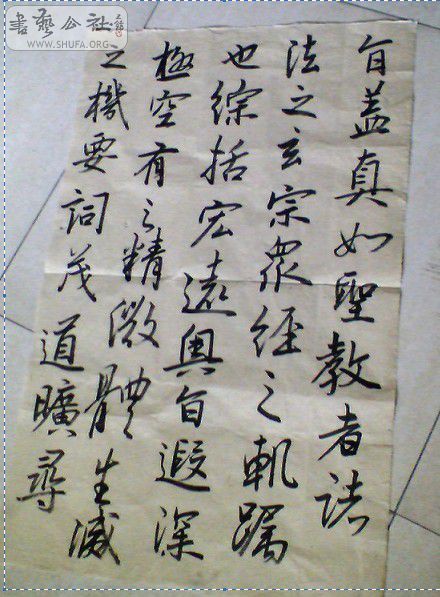 書藝公社
WWW.SHUFA.ORG
旨盖真如聖教者諸
法之玄宗眾經之軌躅
也綜括宏遠奧旨遐深
極空有之精微體生滅
之機要詞茂道曠尋